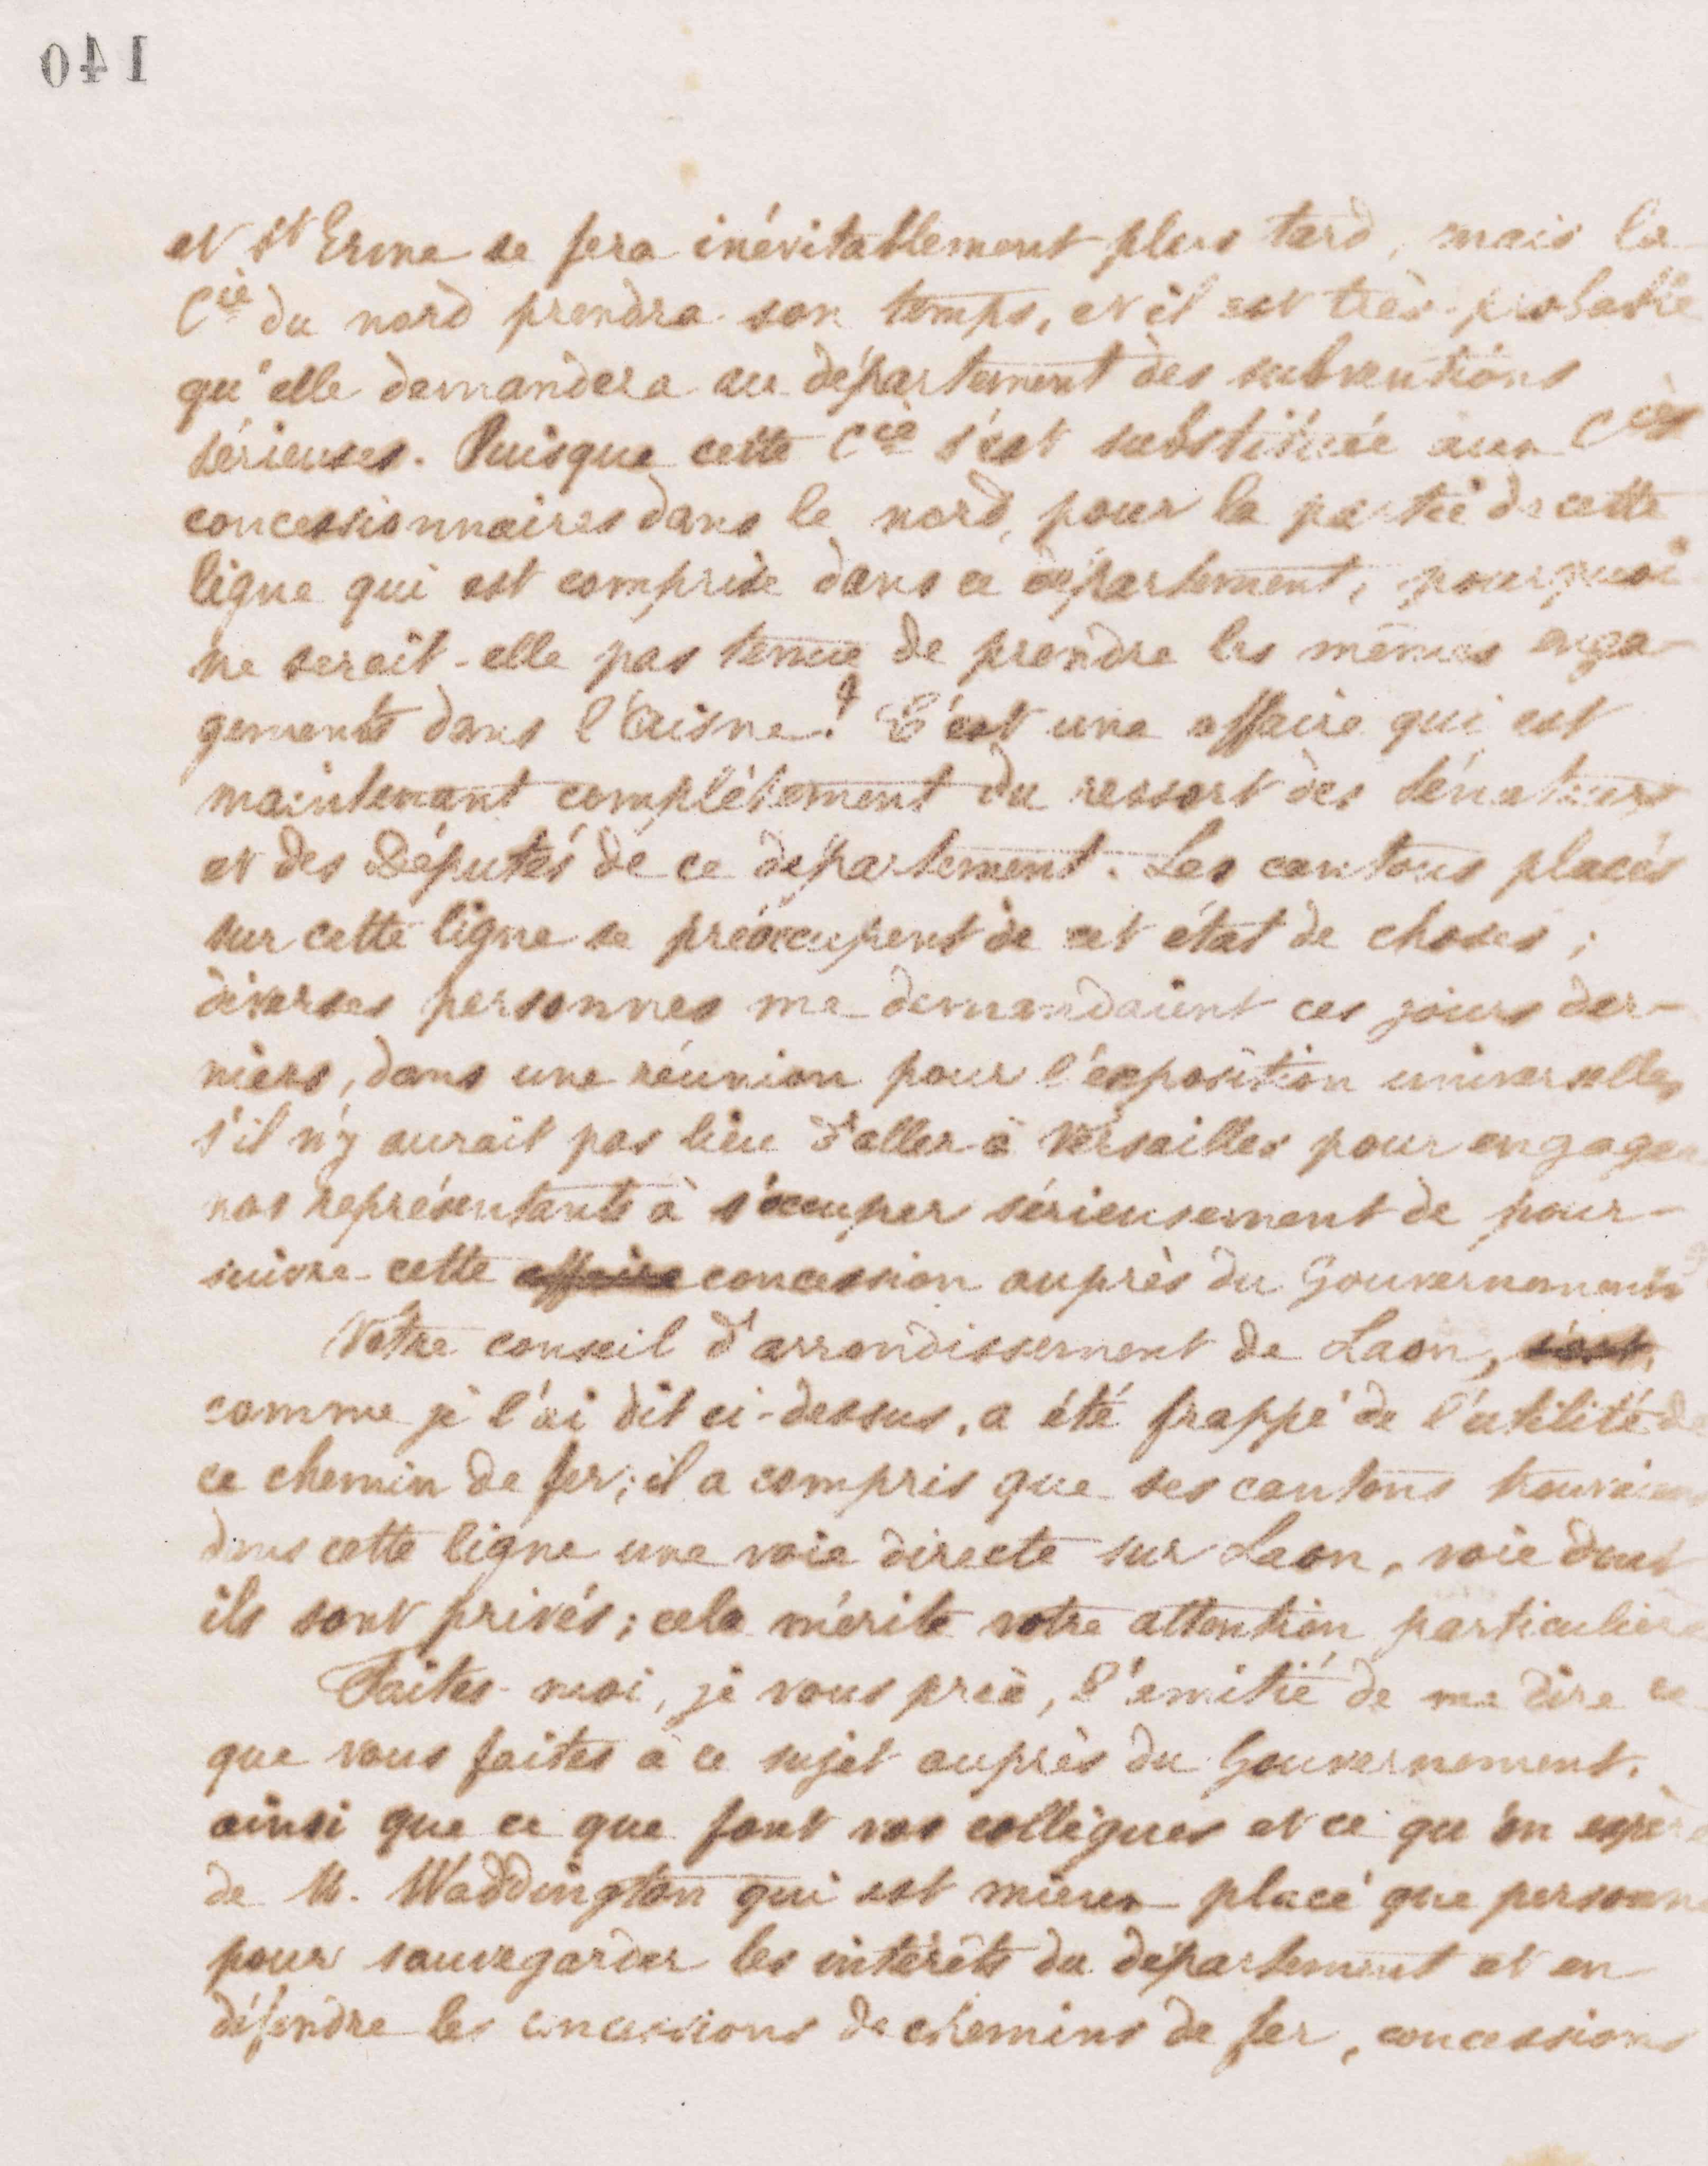 140
et St Erme se fera inévitablement plus tard, mais la
Cie du nord prendra son temps, et il est très-probable
qu'elle demandera au département des subventions
sérieuses. Puisque cette Cie s'est substituée aux Cies
concessionnaires dans le nord, pour la partie de cette
ligne qui est comprise dans ce département, pourquoi
ne serait-elle pas tenue de prendre les mêmes enga-
gements dans l'Aisne? C'est une affaire qui est
maintenant complètement du ressort des Sénateurs
et des Députés de ce département. Les cantons placés
sur cette ligne se préoccupent de cet état de choses;
diverses personnes me demandaient ces jours der-
niers, dans une réunion pour l'exposition universelle,
s'il n'y aurait pas lieu d'aller à Versailles pour engager
nos représentants à s'occuper sérieusement de pour-
suivre cette affaire concession auprès du Gouvernement
Votre conseil d'arrondissement de Laon, s'est,
comme je l'ai dit ci-dessus, a été frappé de l'utilité de
ce chemin de fer; il a compris que ses cantons trouvaient
dans cette ligne une voie directe sur Laon, voie dont
ils sont privés; cela mérite votre attention particulière
Faites-moi, je vous prie, l'amitié de me dire ce
que vous faites à ce sujet auprès du Gouvernement.
ainsi que ce que font vos collègues et ce qu'on espère
de M. Waddington qui est mieux placé que personne
pour sauvegarder les intérêts du département et en
défendre les concessions de chemins de fer, concessions